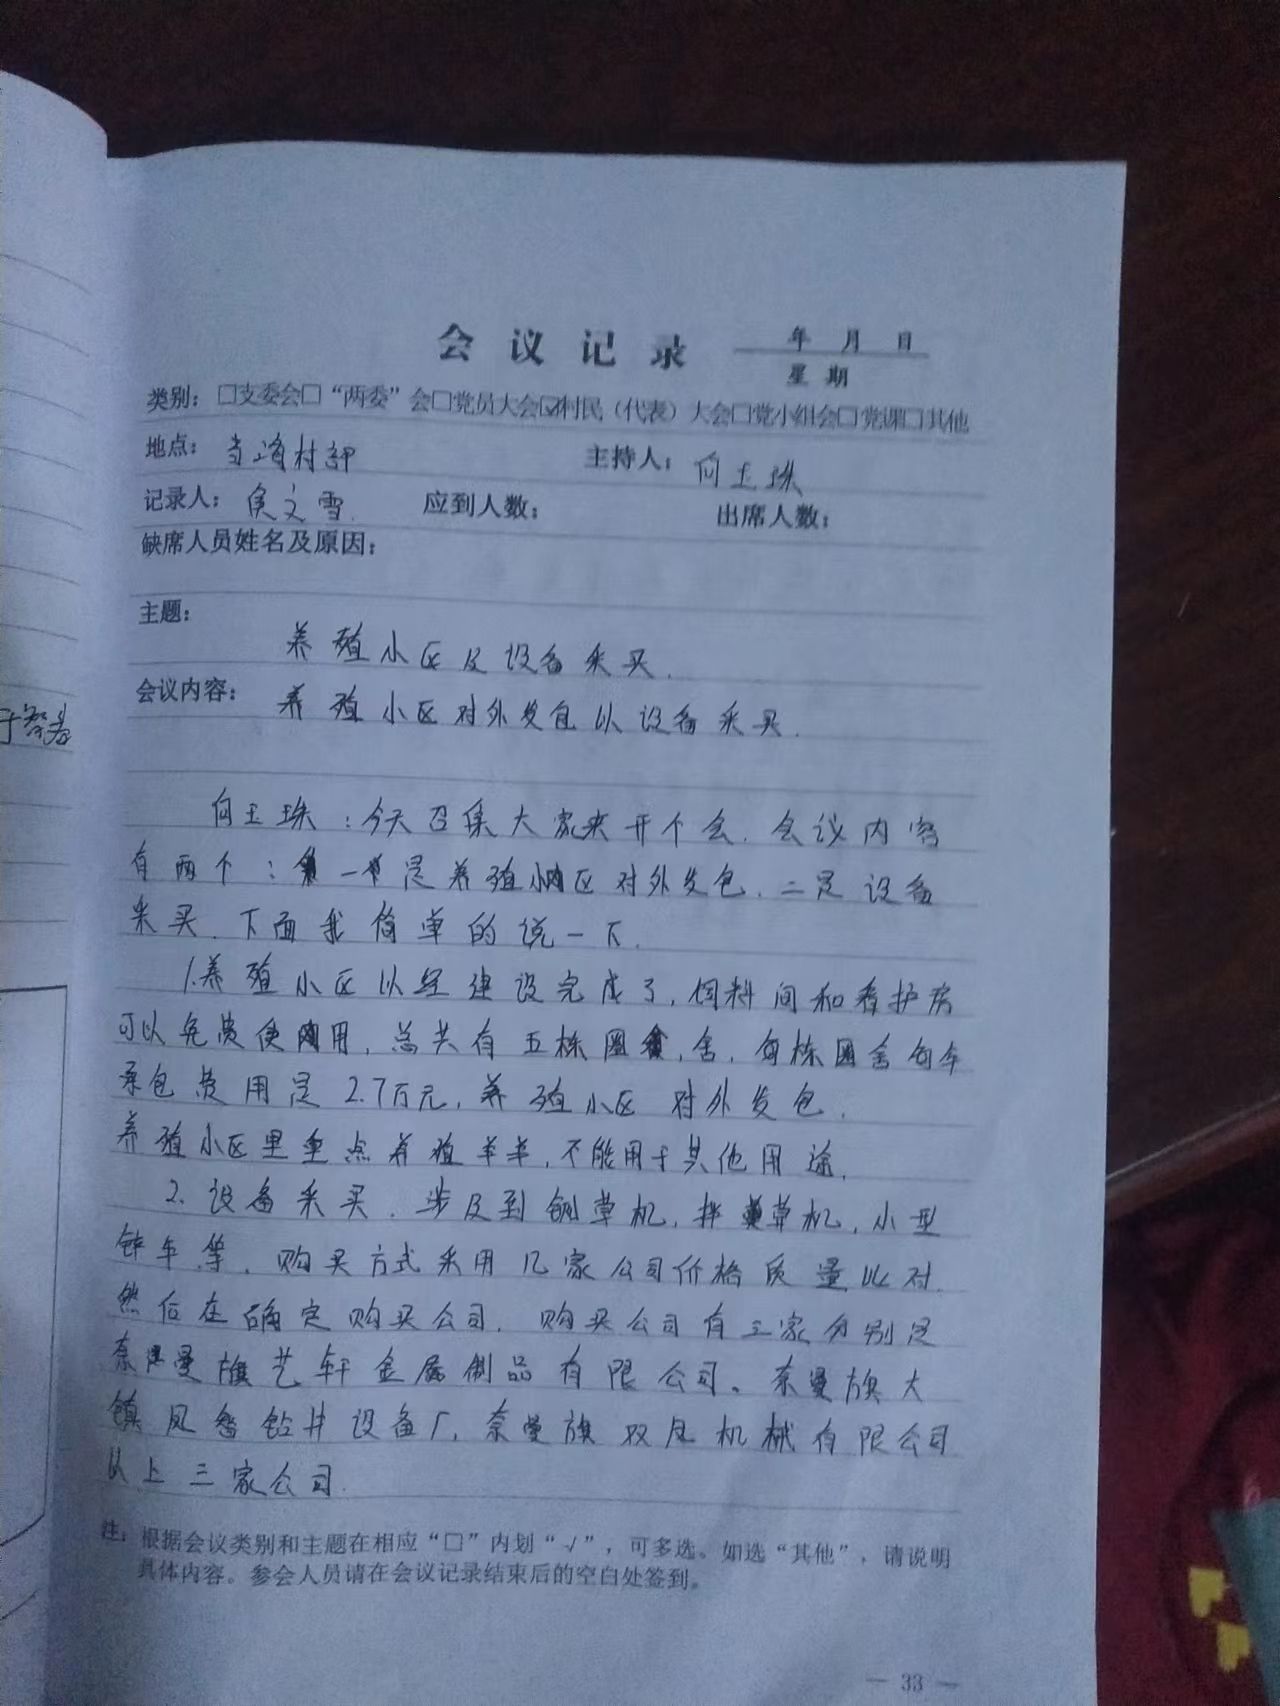 会议记录
年 月 日
星期
类别：□支委会□“两委”会□党员大会☑村民（代表）大会□党小组会□党课□其他
地点： 村部 主持人：何玉珠
记录人：侯文雪. 应到人数： 出席人数：
缺席人员姓名及原因：
主题：
养殖小区及设备采买.
会议内容： 养殖小区对外发包以设备采买.
于
何玉珠：今天召集大家来开个会. 会议内容
有两个： 一 是养殖小区对外发包. 二是设备
采买. 下面我简单的说一下.
1.养殖小区以经建设完成了, 饲料间和看护房
可以免费使用, 总共有五栋圈 舍, 每栋圈舍每年
承包费用是2.7万元, 养殖小区对外发包.
养殖小区里重点养殖羊羊, 不能用于其他用途.
2. 设备采买. 涉及到铡草机, 拌草机, 小型
铲车等. 购买方式采用几家公司价格质量比对.
然后在确定购买公司. 购买公司有三家分别是
奈曼旗艺轩金属制品有限公司。奈曼旗大
镇凤 钻井设备厂, 奈曼旗双凤机械有限公司
以上三家公司.
注：根据会议类别和主题在相应“□”内划“√”，可多选。如选“其他”，请说明
具体内容。参会人员请在会议记录结束后的空白处签到。
— 33 —